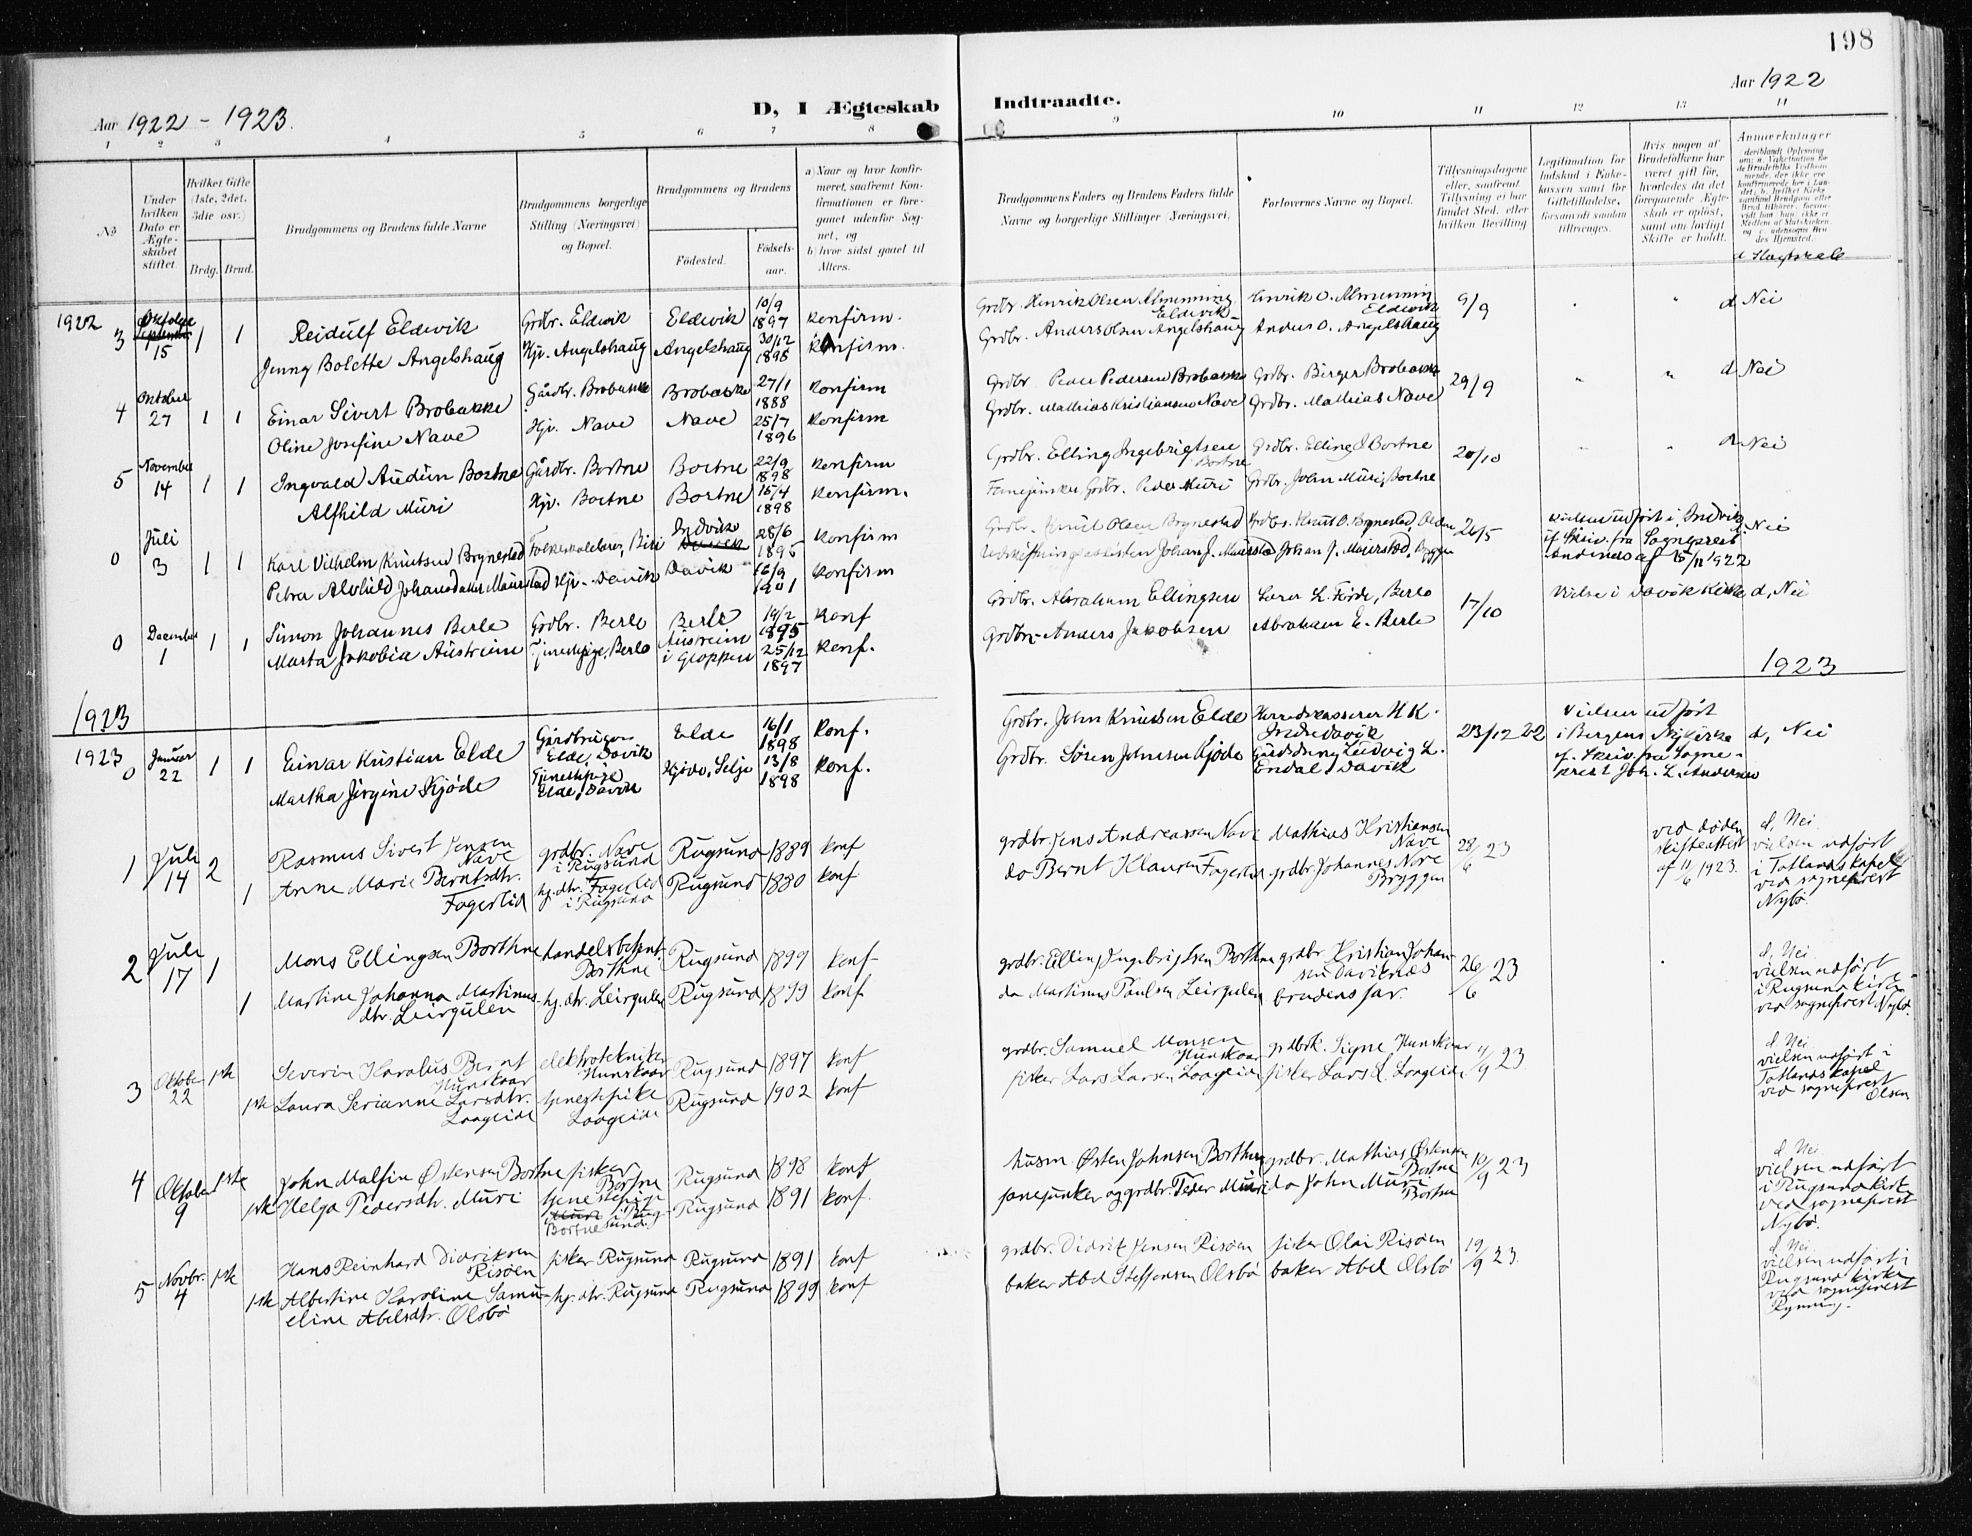 198
Aar 1922 - 1923.
D, I Ægteskab
Indtraadte.
Aar 1922
1 2 3 4 5 6 7 8
9 10 11 12 13 14
No
Under
hvilken
Dato er
Ægte-
skabet
stiftet
Hvilket Gifte
(1ste, 2det,
3die osv.)
Brdg. Brud.
Brudgommens og Brudens fulde Navne
Brudgommens borgerlige
Stilling (Næringsvei)
og Bopæl.
Brudgommens og Brudens
Fødested.
Fødsels-
aar.
a) Naar og hvor konfir-
meret, saafremt Kon-
firmationen er fore-
gaaet udenfor Sog-
net, og
b) hvor sidst gaaet til
Alters.
Brudgommens Faders og Brudens Faders fulde
Navne og borgerlige Stillinger (Næringsvei).
Forlovernes Navne og Bopæl.
Tillysningsdagene
eller, saafremt
Tillysning ei har
fundet Sted, efter
hvilken Bevilling
Legitimation for
Indskud i Enke-
kassen samt for
Giftetilladelse,
forsaavidt saadan
tiltrænges.
Hvis nogen af
Brudefolkene har
været gift før,
hvorledes da det
foregaaende Ægte-
skab er opløst,
samt om lovligt
Skifte er holdt.
Anmærkninger
1922
3 Oktober 15 1 1
Reidulf Eldevik Grdbr. Eldevik Eldevik 10/9 1897 konfirm.
Jenny Bolette Angelshaug Hjv. Angelshaug Angelshaug 30/12 1898 Konfirm.
Grdbr. Henrik Olsen Almenning Eldevik Henrik O. Almenning Eldevik 9/9 d Nei
Grdbr. Anders Olsen Angelshaug Anders O. Angelshaug
4 Oktober 27 1 1
Einar Sivert Brobakke Gårdbr. Brobakke Brobakke 27/1 1888 konfirm
Oline Josefine Nave Hjv. Nave Nave 25/7 1896 konfirm
Grdbr. Peder Pedersen Brobakke Grdbr. Birger Brobakke 29/9 d Nei
Grdbr. Mathias Kristiansen Nave Grdbr. Mathias Nave
5 November 14 1 1
Ingvald Audun Bortne Gårdbr. Bortne Bortne 22/9 1898 konfirm
Alfhild Muri Hjv. Bortne Bortne 15/4 1898 konfirm.
Grdbr. Elling Ingebrigtsen Bortne Grdbr. Elling I. Bortne 20/10 d Nei
Fanejunker, Grdbr. Peder Muri Grdbr. John Muri, Bortne
0 Juli 3 1 1
Karl Vilhelm Knutsen Brynestad Folkeskolelærer, Biri Indvik 28/6 1895 konfirm
Petra Alvhild Johansdatter Maurstad Hjv. Davik Davik 16/9 1901 konfirm
Grdbr. Knut Olsen Brynestad Grdbr. Knut O. Brynestad, Olden 26/5
Johan J. Maurstad Johan J. Maurstad, Bryggen
Vielsen udført i Indvik
if. Skriv. fra Sogneprest
Andines af 15/11 1922
Nei
0 December 1 1 1
Simon Johannes Berle Grdbr. Berle Berle 14/2 1895 Konf
Marta Jakobia Austreim Tjenestpige, Berle Austreim i Gloppen 25/12 1897 konf.
Grdbr. Abraham Ellingsen Lærer L. Førde, Berle 17/10 Vielse i Davik Kirke d, Nei
Grdbr. Anders Jakobsen Abraham E. Berle
1923
1923
1923
0 Januar 22 1 1
Einar Kristian Elde Gårdbruger Elde, Davik Elde 16/1 1898 Konf.
Martha Jørgine Kjøde Tjenestpige Elde, Davik Kjøde, Selje 13/8 1898 konf.
Grdbr. John Knudsen Elde Herredskasserer H K. Indredavik 23/12 22
Grdbr. Søren Johnsen Kjøde Ludvig L. Endal, Davik
Vielsen udført
i Bergens Nykirke
if. Skriv. fra Sogne-
prest Joh. L. Andersen
d, Nei
1 Juli 14 2 1
Rasmus Sivert Jensen Nave grdbr. Nave i Rugsund Rugsund 1889 konf
Anne Marie Berntsdtr. Fagerlid hj. dtr. Fagerlid i Rugsund Rugsund 1880 konf
grdbr Jens Andreassen Nave Mathias Kristiansen Nave 28/6 23
do Bernt Klausen Fagerlid grdbr. Johannes Nore Bryggen
ved døden
skifteattest
af 11/6 1923.
d, Nei.
vielsen udført
i Totlands kapel
ved sogneprest
Nybø.
2 Juli 17 1 1
Mons Ellingsen Borthne handelsbetjent Borthne Rugsund 1899 konf
Martine Johanna Martinus- dtr. Leirgulen hj. dtr. Leirgulen Rugsund 1899 konf
grdbr. Elling Ingebrigtsen Borthne grdbr. Kristian Johan- sen Daviknes 26/6 23
do Martinus Paulsen Leirgulen brudens far.
d, Nei
vielsen udført
i Rugsund kirke
ved sogneprest Nybø.
3 Oktober 22 1ste 1ste
Severin Karolus Bernt Hunskaar elektrotekniker Hunskaar Rugsund 1897 konf
Laura Serianne Larsdtr. Laageide tjenestpike Laageide Rugsund 1902 konf
grdbr. Samuel Monsen Hunskaar grdbrk. Signe Hunskaar 11/9 23
fisker Lars Larsen Laageide fisker Lars L. Laageide
d. Nei
vielsen udført i
Totlands kapel
ved sogneprest
Olsen
4 Oktober 9 1ste 1ste
John Malfin Østensen Bortne fisker Bortne Rugsund 1898 konf
Helga Pedersdtr. Muri tjenestepige Bortne i Rugsund Rugsund 1891 konf.
husm. Østen Johnsen Borthne grdbr. Mathias Østensen Bortne 10/9 23
fanejunker og grdbr. Peder Muri do John Muri Bortne
d, Nei
vielsen udført
i Rugsund kirke
ved sogneprest
Nybø.
5 Novbr. 4 1ste 1ste
Hans Reinhard Didriksen Risøen fisker Rugsund Rugsund 1891 konf
Albertine Karoline Samu- eline Abelsdtr. Olsbø hj. dtr. Rugsund Rugsund 1899 konf
grdbr. Didrik Jensen Risøen fisker Olai Risøen 19/9 23.
baker Abel Steffensen Olsbø baker Abel Olsbø
d. Nei
vielsen udført i
Rugsund kirke
ved sogneprest
Rynning.